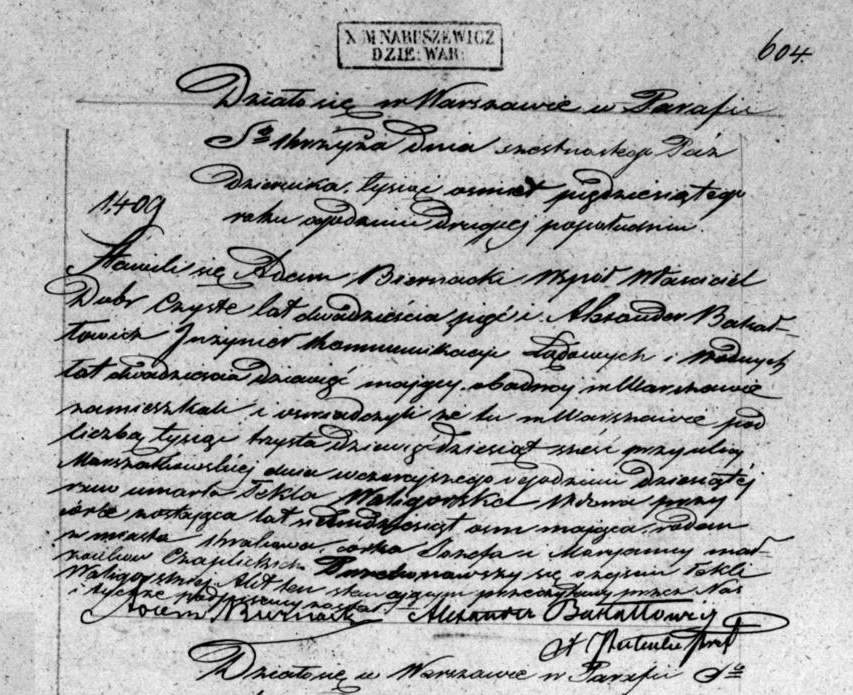 X M NARUSZEWICZ
DZIE: WAR:
604.
Działo się w Warszawie w Parafii
Sº Krzyża dnia szesnastego Paź
dziernika, tysiąc osmset pięćdziesiątego
1,409
roku o godzinie drugiej popołudniu.
Stawili się Adam Biernacki Wspoł Właściciel
Dobr Czyste lat dwadzieścia pięć i Alexander Bakał-
łowicz Inżynier Kommunikacji Lądowych i Wodnych
lat dwadzieścia dziewięć mający, obadwaj w Warszawie
zamieszkali i oswiadczyli że tu w Warszawie pod
liczbą tysiąc trzysta dziewięćdziesiąt sześć przy ulicy
Marszałkowskiej dnia wczorajszego o godzinie dziesiątej
rano umarła Tekla Waligorska Wdowa przy
córce zostająca lat siedmdziesiąt osm mająca, rodem
z miasta Krakowa, córka Jozefa i Marjanny mał-
żonków Czaplickich Przekonawszy się o zejściu Tekli
Waligorskiej Akt ten stawającym przeczytany przez Nas
i tychże podpisany został
Adam Biernacki Alexander Bakałłowicz
Działo się w Warszawie w Parafii Sº